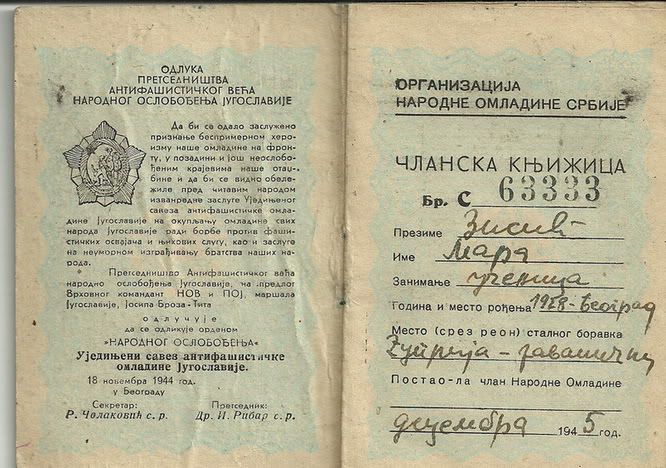 ОДЛУКА
ПРЕТСЕДНИШТВА
АНТИФАШИСТИЧКОГ ВЕЋА
НАРОДНОГ ОСЛОБОЂЕЊА ЈУГОСЛАВИЈЕ
Да би се одало заслужено
признање беспримерном херо-
изму наше омладине на фрон-
ту, у позадини и још неослобо-
ђеним крајевима наше отаџ-
бине и да би се видно обеле-
жиле пред читавим народом
изванредне заслуге Уједињеног
савеза антифашистичке омла-
дине Југославије на окупљању омладине свих
народа Југославије ради борбе против фаши-
стичких освајача и њихових слугу, као и заслуге
на неуморном изграђивању братства наших на-
рода.
Претседништво Антифашистичког већа
народно ослобођења Југославије, на предлог
Врховног командант НОВ и ПОЈ, маршала
Југославије, Јосипа Броза-Тита
одлучује
да се одликује орденом
„НАРОДНОГ ОСЛОБОЂЕЊА»
Уједињени савез антифашистичке
омладине Југославије.
18 новембра 1944 год.
у Београду
Секретар: Претседник:
Р. Чолаковић с. р. Др. И. Рибар с. р.
ОРГАНИЗАЦИЈА
НАРОДНЕ ОМЛАДИНЕ СРБИЈЕ
ЧЛАНСКА КЊИЖИЦА
Бр. С 63333
Презиме Зисић
Име Мара
Занимање ученица
Година и место рођења 1928-Београд
Место (срез реон) сталног боравка
Ћуприја -
Постао-ла члан Народне Омладине
децембра 1945 год.